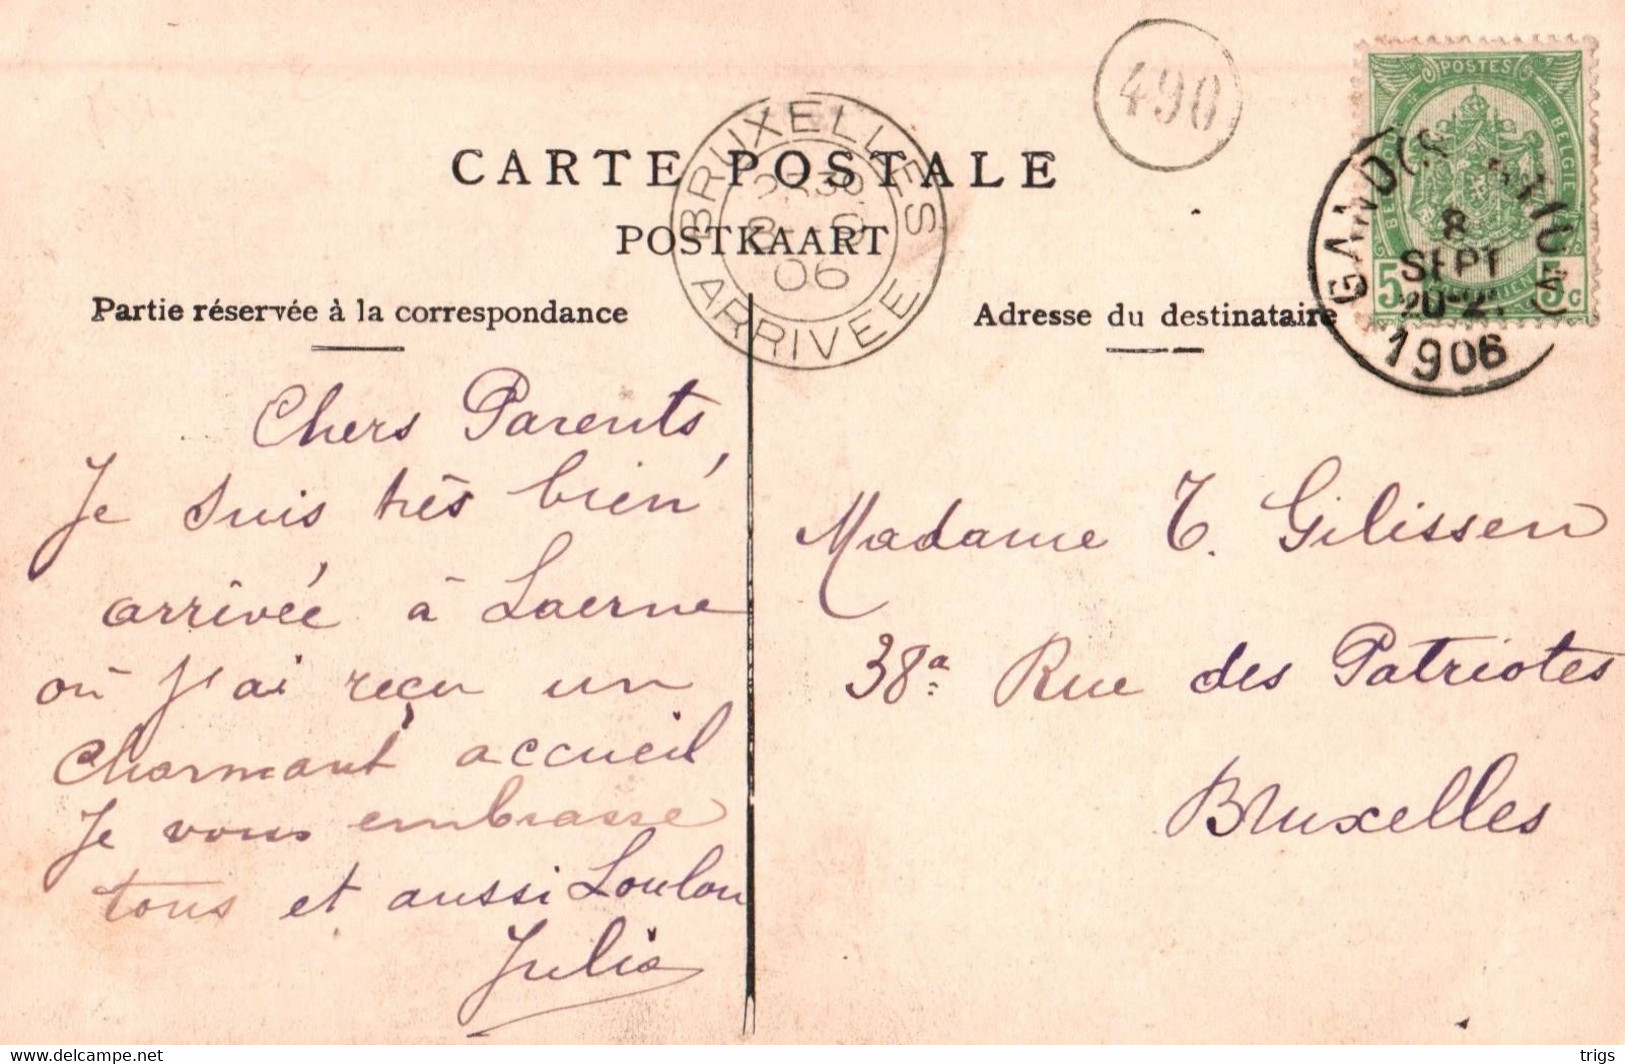 490
POSTES
BELGIE
5 5c
GAND
8
SEPT
20-2
1906
BRUXELLES
ARRIVEE
06
CARTE POSTALE
POSTKAART
Partie réservée à la correspondance
Adresse du destinataire
Chers Parents,
Je suis très bien
arrivée à Laerne
où j'ai reçu un
charmant accueil
Je vous embrasse
tous et aussi Loulou
Julia
Madame T. Gilissen
38a Rue des Patriotes
Bruxelles
www.delcampe.net
trigs